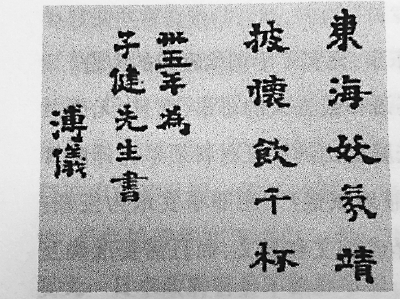 東海妖氛靖
披懷飲千杯
卅五年為
子健先生書
溥儀